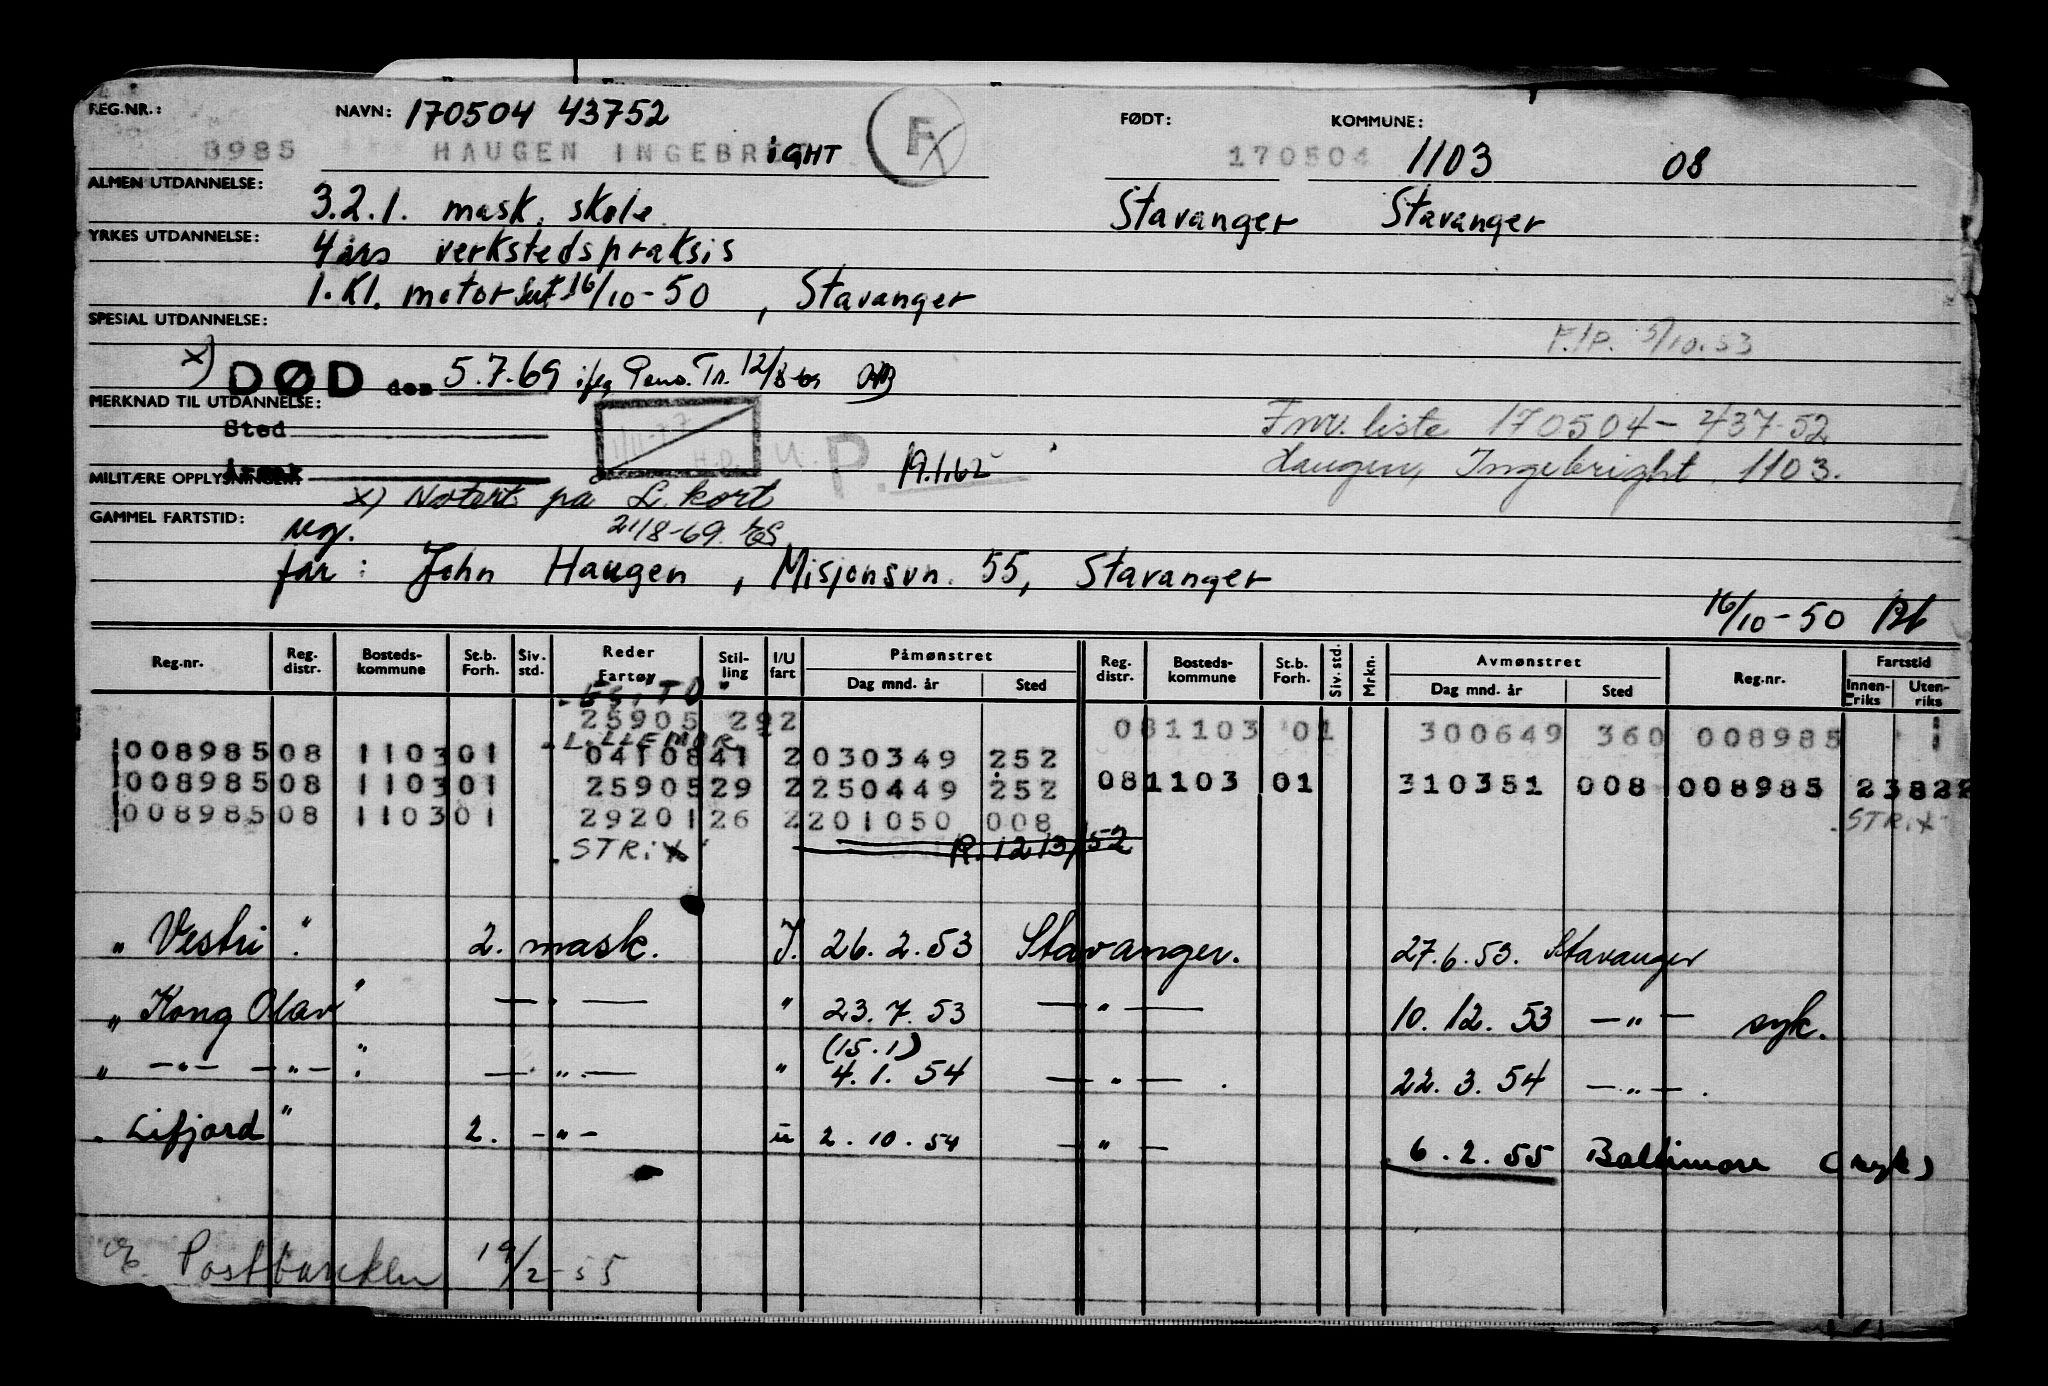 REG.NR.: NAVN: 170504 43752 FØDT: KOMMUNE:
8985 HAUGEN INGEBRIGHT Fx 170504 1103 08
ALMEN UTDANNELSE: 3.2.1. mask. skole Stavanger Stavanger
YRKES UTDANNELSE: 4 års verkstedspraksis
1. Kl. motor 16/10-50, Stavanger
SPESIAL UTDANNELSE:
F.IP. 5/10.53
x) DØD den 5.7.69 ifg. Tr. 12/8-69
MERKNAD TIL UTDANNELSE:
Sted
Fnr. liste 170504-437-52
Årsak U.P. 19.1.62 Haugen, Ingebright 1103.
MILITÆRE OPPLYSNINGER:
x) Notert på L. kort
GAMMEL FARTSTID: 21/8-69.
far: John Haugen, Misjonsvn. 55, Stavanger
16/10-50
Reg.nr. Reg. distr. Bosteds-kommune St.b. Forh. Siv. std. Reder Fartøy Stil-ling I/U fart Påmønstret Dag mnd. år Sted Reg. distr. Bosteds-kommune St.b. Forh. Siv. std. Mrkn. Avmønstret Dag mnd. år Sted Reg.nr. Fartstid Innen-riks Uten-riks
25905 292 081103 01 300649 360 008985 1
"LILLEMOR"
008985 08 1103 01 04108 41 2 030349 252
008985 08 1103 01 25905 29 2 250449 252 081103 01 310351 008 008985 23822
008985 08 1103 01 29201 26 2 201050 008 STRIX
"STRIX" R. 12 13/52
"Vestri" 2. mask. I. 26.2.53 Stavanger. 27.6.53. Stavanger
"Kong Olav" — " — " 23.7.53 — " — 10.12.53 — " — syk.
(15.1)
" — " — — " — " — " — " 4.1.54 — " — . 22.3.54 — " — .
"Lifjord" 2. — " — u 2.10.54 — " — 6.2.55 Baltimore (syk)
Postbanken 19/2-55